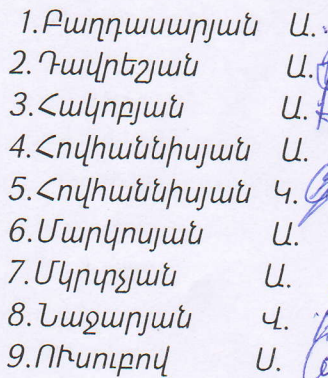 1.Բաղդասարյան Ա.
2.Դավրեշյան Ա.
3.Հակոբյան Ա.
4.Հովհաննիսյան Ա.
5.Հովհաննիսյան Կ.
6.Մարկոսյան Ա.
7.Մկրտչյան Ա.
8.Նաջարյան Վ.
9.Ուսուբով Ս.